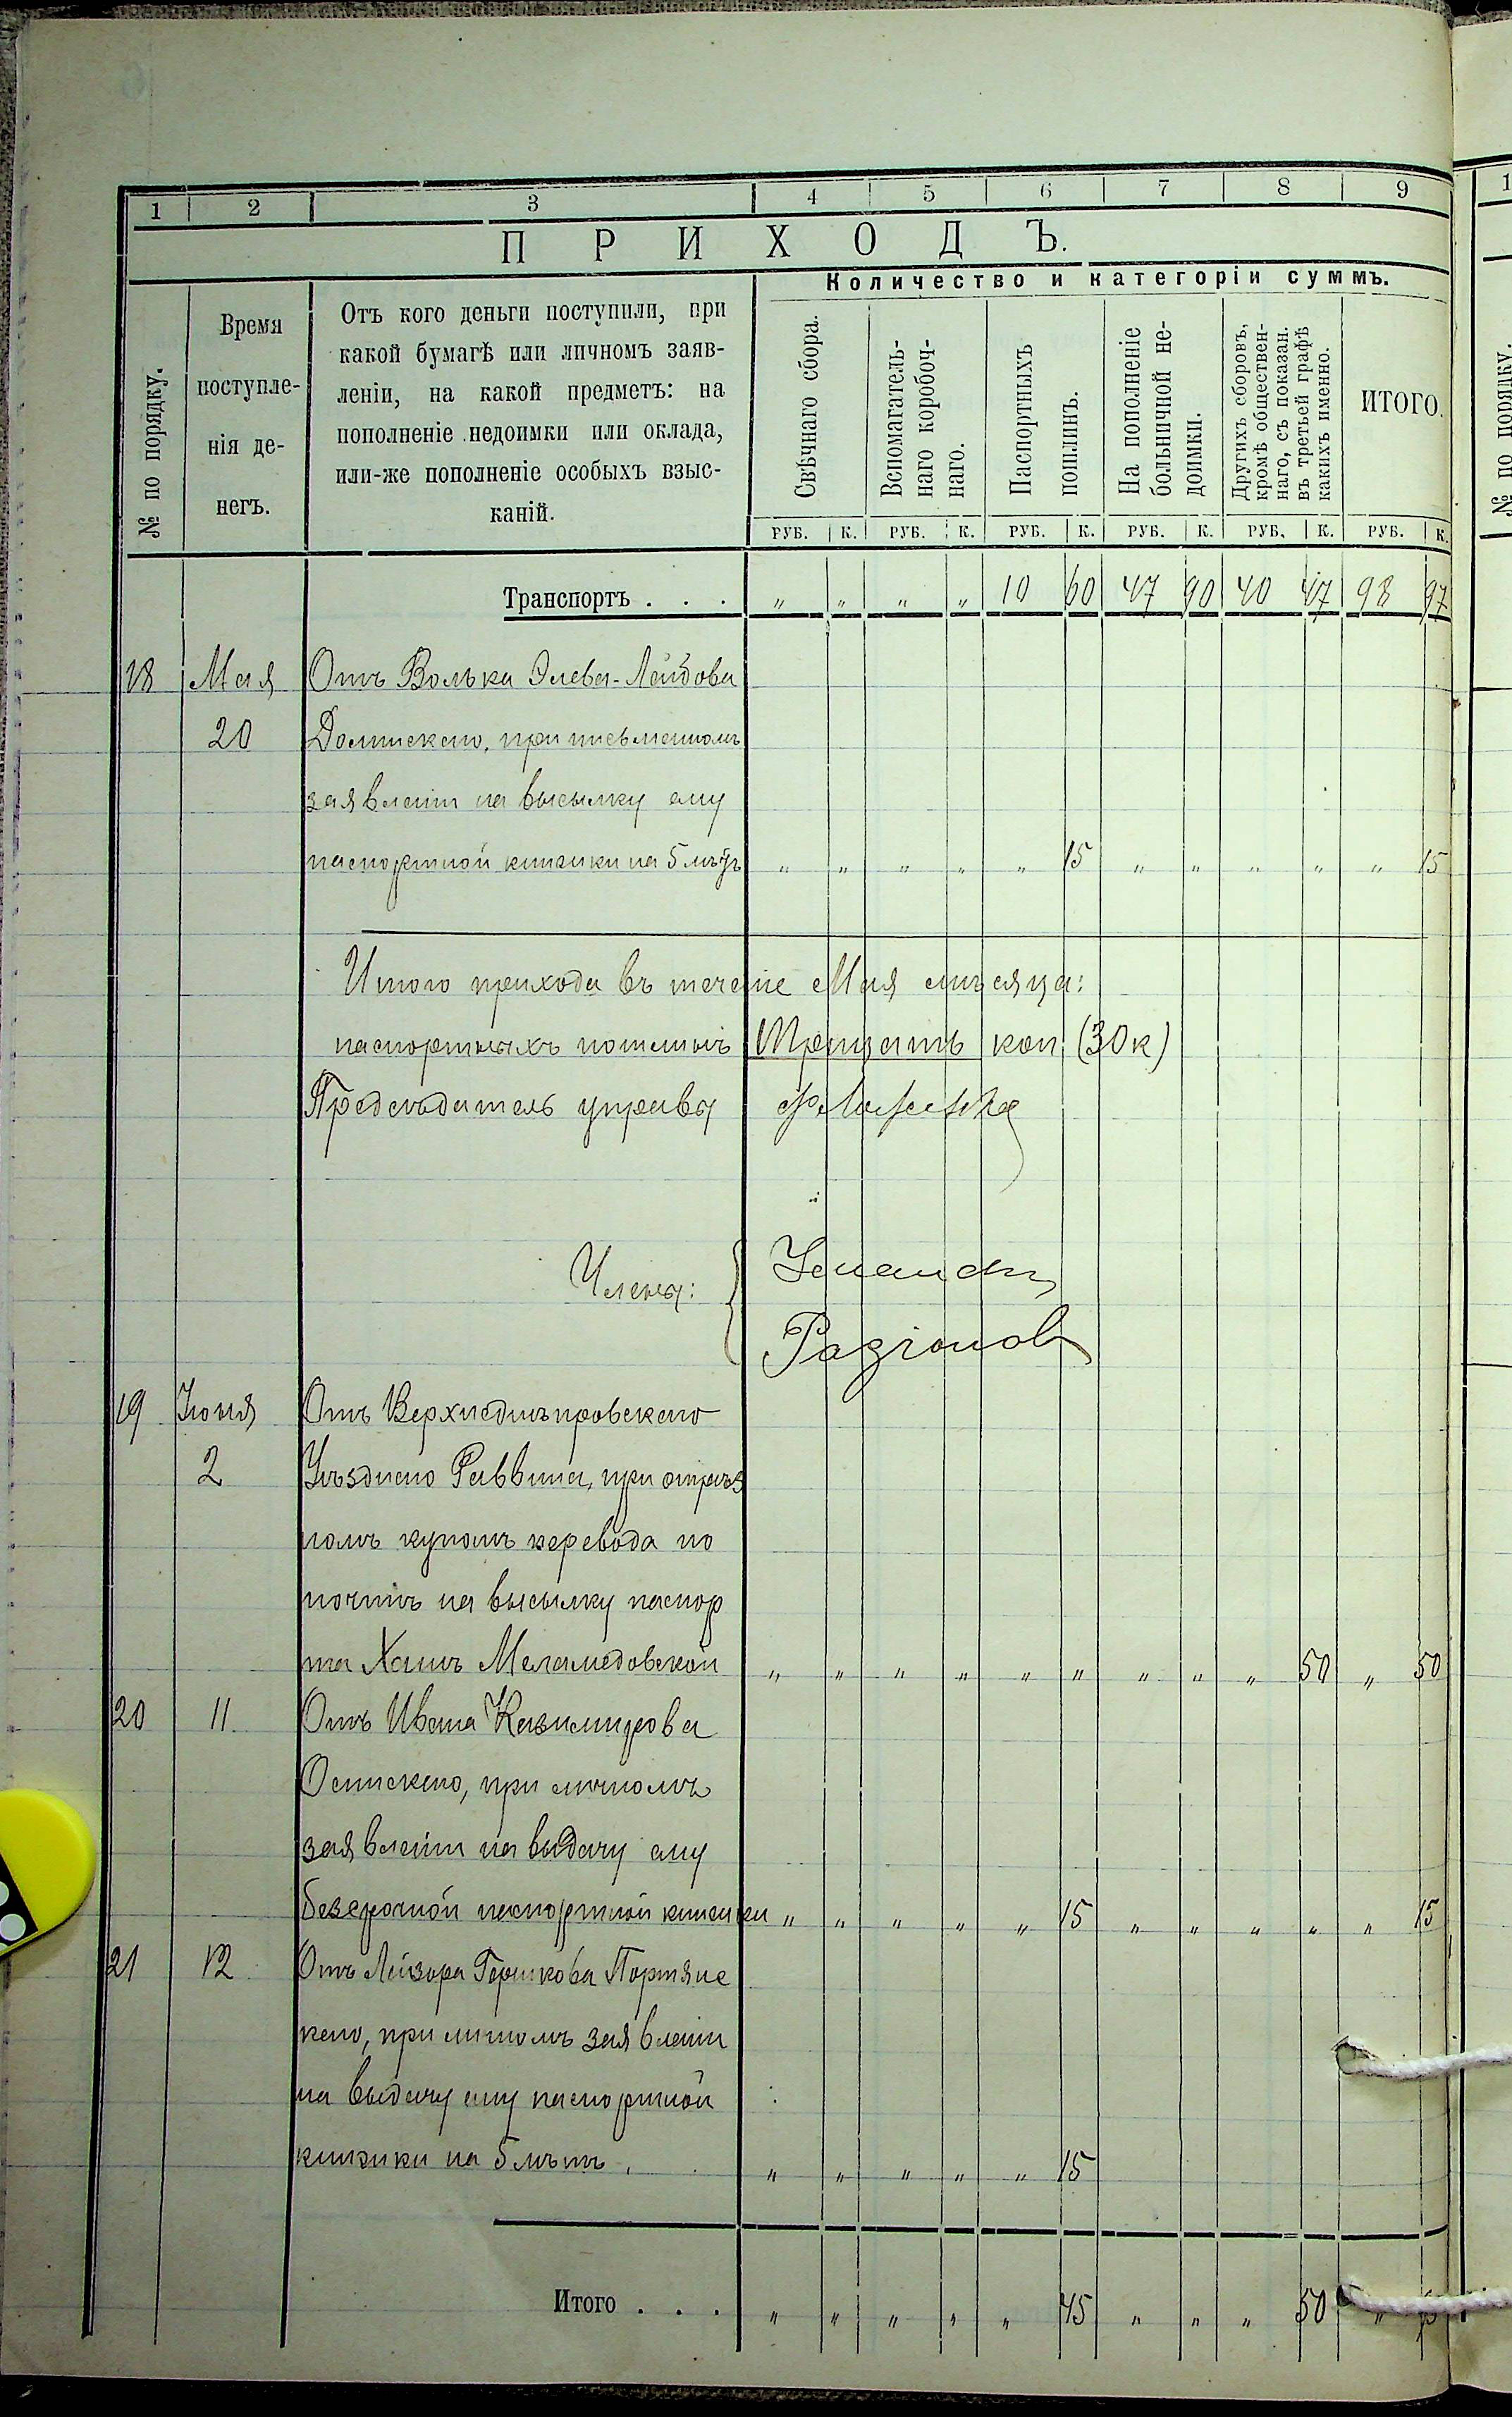 1 2 3 4 5 6 7 8 9
ПРИХОДЪ.
№ по порядку.
Время поступле-
нія де-
негъ.
Отъ кого деньги поступили, при
какой бумагѣ или личномъ заяв-
леніи, на какой предметъ: на
пополненіе недоимки или оклада,
или-же пополненіе особыхъ взыс-
каній.
Количество и категоріи суммъ.
Свѣчнаго сбора.
Вспомагатель-
наго коробоч-
наго.
Паспортныхъ
пошлинъ.
На пополненіе
больничной не-
доимки.
Другихъ сборовъ,
кромѣ обществен-
наго, съ показан.
въ третьей графѣ
какихъ именно.
ИТОГО.
РУБ. К. РУБ. К. РУБ. К. РУБ. К. РУБ. К. РУБ. К.
Транспортъ . . . " " " " 10 60 47 90 40 47 98 97
18 Мая Отъ Волька Элева-Лейбова
20 Долинскаго, при письменномъ
заявленіи на высылку ему
паспортной книжки на 5 лѣтъ " " " " " 15 " " " " " 15
Итого прихода въ теченіе Мая мѣсяца:
паспортныхъ пошлинъ Тридцать коп (30 к)
Предсѣдатель управы
Члены:
Радіонов
19 Іюня Отъ Верхнеднѣпровскаго
2 Уѣзднаго Раввина, при отрѣз
номъ купонѣ перевода по
почтѣ на высылку паспор
та Ханѣ Меламедовской " " " " " " " " " 50 " 50
20 11 Отъ Ивана Казимирова
Осинскаго, при личномъ
заявленіи на выдачу ему
безсрочной паспортной книжки " " " " " 15 " " " " " 15
21 12 Отъ Лейзора Гершкова Портянс
каго, при личномъ заявленіи
на выдачу ему паспортной
книжки на 5 лѣтъ. " " " " " 15
Итого . . . " " " " " 45 " " " 50 "
1
№ по порядку.